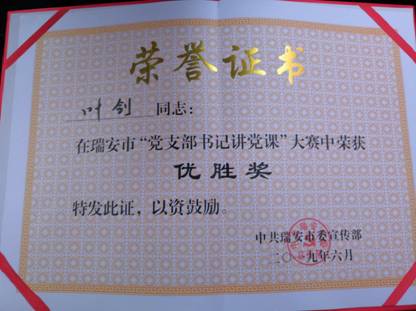 荣誉证书
叶剑 同志：
在瑞安市“党支部书记讲党课”大赛中荣获
优胜奖
特发此证，以资鼓励。
中共瑞安市委宣传部
二〇一九年六月